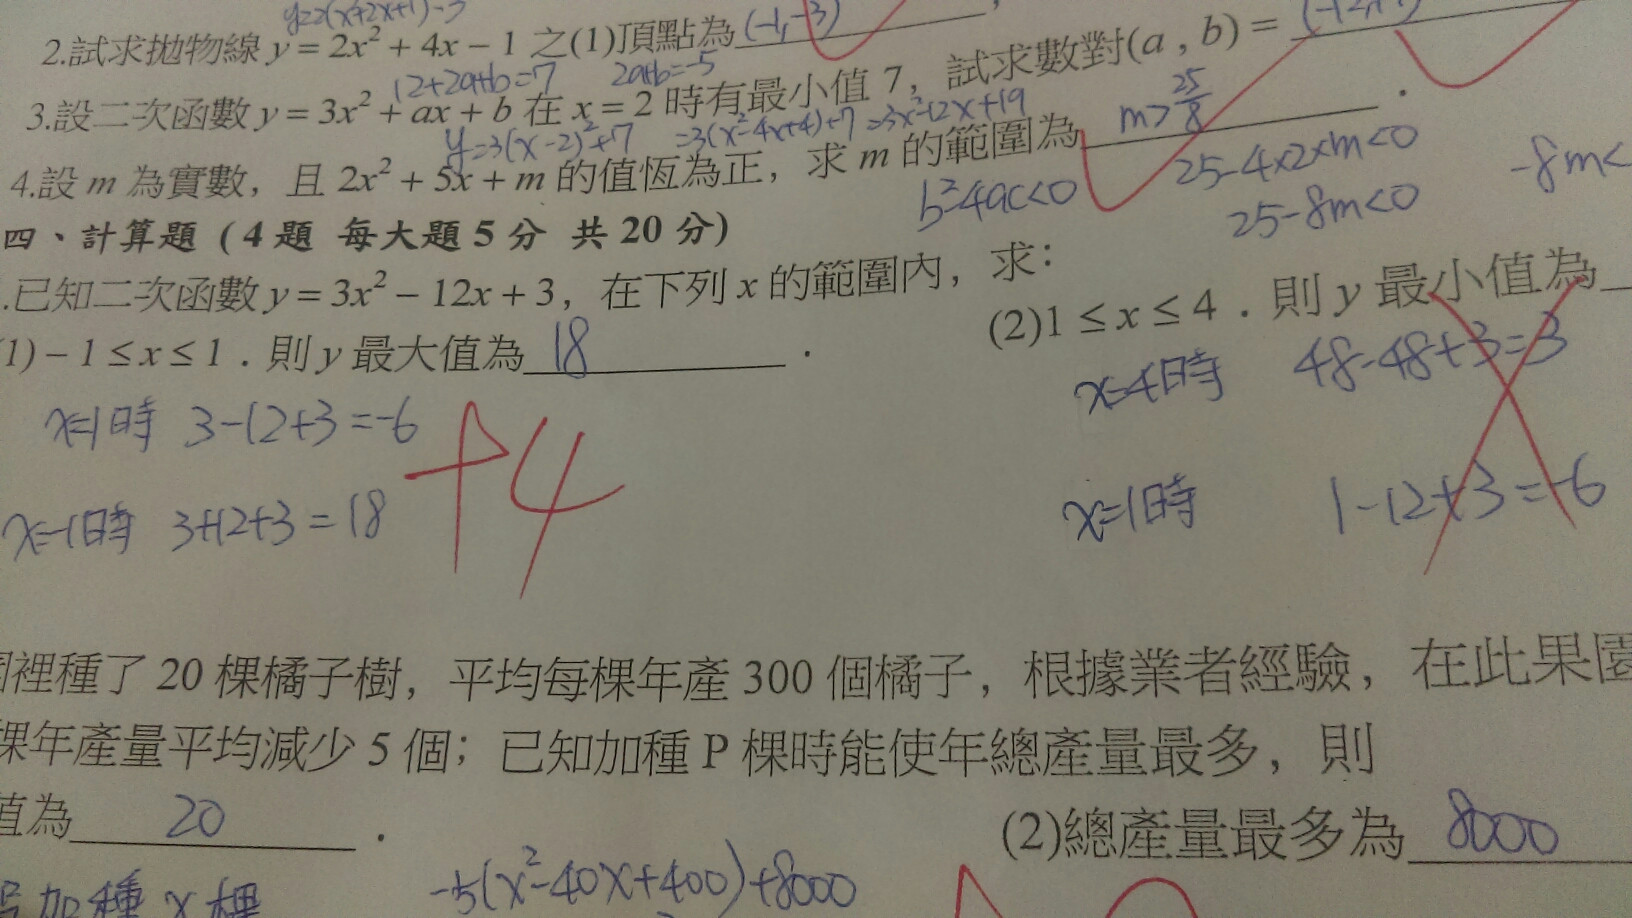 y=2(x²+2x+1)-3
2.試求拋物線 y = 2x² + 4x − 1 之(1)頂點為 (-1,-3)
12+2a+b=7 2a+b=-5
3.設二次函數 y = 3x² + ax + b 在 x = 2 時有最小值 7，試求數對(a , b) =
y=3(x-2)²+7 =3(x²-4x+4)+7 =3x²-12x+19
4.設 m 為實數，且 2x² + 5x + m 的值恆為正，求 m 的範圍為 m>25/8 .
b²-4ac<0 25-4×2×m<0 -8m<
25-8m<0
四、計算題 ( 4 題 每大題 5 分 共 20 分)
.已知二次函數 y = 3x² − 12x + 3，在下列 x 的範圍內，求：
(1) − 1 ≤ x ≤ 1．則 y 最大值為 18 . (2)1 ≤ x ≤ 4．則 y 最小值為
x=1時 3-12+3=-6 +4 x=4時 48-48+3=3
x=-1時 3+12+3=18 x=1時 1-12+3=-6
裡種了 20 棵橘子樹，平均每棵年產 300 個橘子，根據業者經驗，在此果園
棵年產量平均減少 5 個；已知加種 P 棵時能使年總產量最多，則
值為 20 . (2)總產量最多為 8000
加種 x 棵 -5(x²-40x+400)+8000